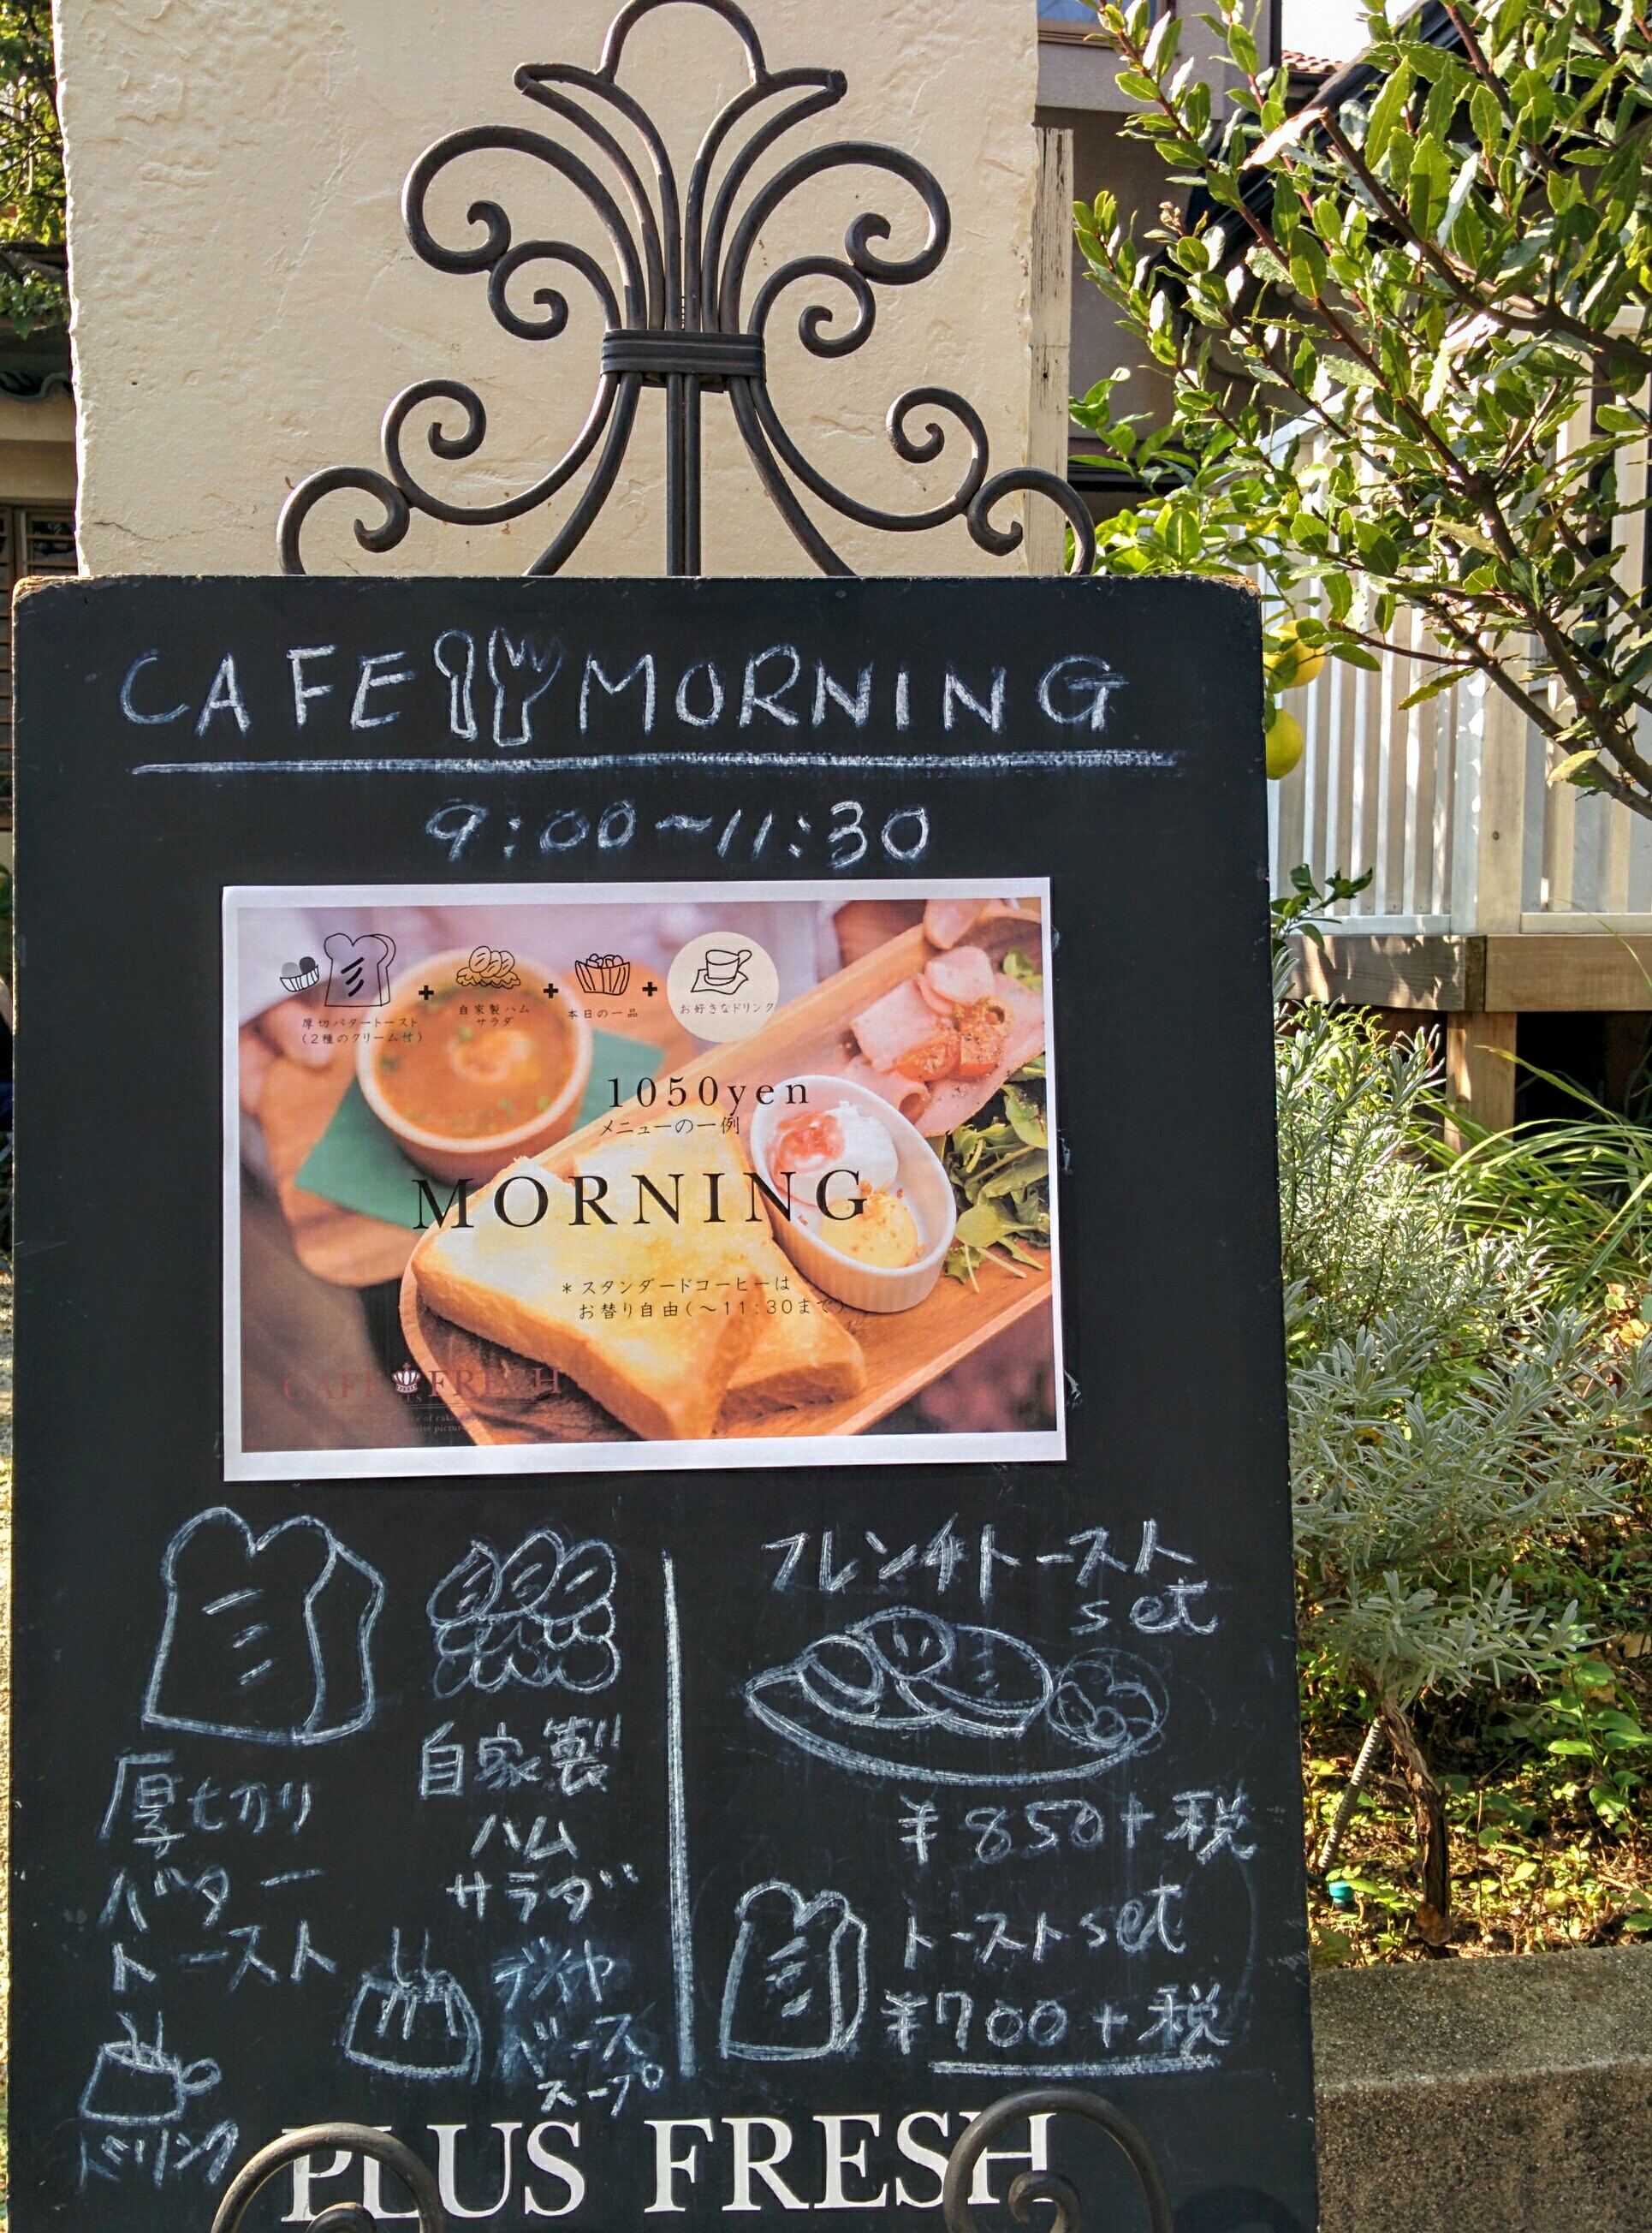 CAFE MORNING
9:00~11:30
厚切バタートースト
(2種のクリーム付)
+
自家製ハム
サラダ
+
本日の一品
+
お好きなドリンク
1050yen
メニューの一例
MORNING
*スタンダードコーヒーは
お替り自由(~11:30まで)
CAFE FRESH
厚切り
バター
トースト
自家製
ハム
サラダ
ドリンク
スープ
フレンチトースト
set
¥850+税
トーストset
¥700+税
PLUS FRESH